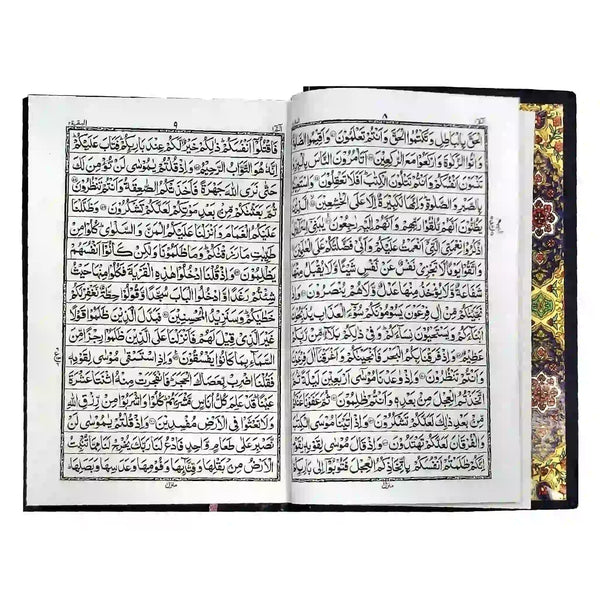 ٨
الْحَقَّ بِالْبَاطِلِ وَتَكْتُمُوا الْحَقَّ وَاَنْتُمْ تَعْلَمُوْنَ وَاَقِيْمُوا الصَّلٰوةَ
وَاٰتُوا الزَّكٰوةَ وَارْكَعُوْا مَعَ الرّٰكِعِيْنَ اَتَاْمُرُوْنَ النَّاسَ بِالْبِرِّ
وَتَنْسَوْنَ اَنْفُسَكُمْ وَاَنْتُمْ تَتْلُوْنَ الْكِتٰبَ اَفَلَا تَعْقِلُوْنَ وَاسْتَعِيْنُوْا
بِالصَّبْرِ وَالصَّلٰوةِ وَاِنَّهَا لَكَبِيْرَةٌ اِلَّا عَلَى الْخٰشِعِيْنَ الَّذِيْنَ
يَظُنُّوْنَ اَنَّهُمْ مُّلٰقُوْا رَبِّهِمْ وَاَنَّهُمْ اِلَيْهِ رٰجِعُوْنَ يٰبَنِيْٓ اِسْرَآءِيْلَ
اذْكُرُوْا نِعْمَتِيَ الَّتِيْٓ اَنْعَمْتُ عَلَيْكُمْ وَاَنِّيْ فَضَّلْتُكُمْ عَلَى الْعٰلَمِيْنَ
وَاتَّقُوْا يَوْمًا لَّا تَجْزِيْ نَفْسٌ عَنْ نَّفْسٍ شَيْئًا وَّلَا يُقْبَلُ مِنْهَا
شَفَاعَةٌ وَّلَا يُؤْخَذُ مِنْهَا عَدْلٌ وَّلَا هُمْ يُنْصَرُوْنَ وَاِذْ
نَجَّيْنٰكُمْ مِّنْ اٰلِ فِرْعَوْنَ يَسُوْمُوْنَكُمْ سُوْٓءَ الْعَذَابِ يُذَبِّحُوْنَ
اَبْنَآءَكُمْ وَيَسْتَحْيُوْنَ نِسَآءَكُمْ وَفِيْ ذٰلِكُمْ بَلَآءٌ مِّنْ رَّبِّكُمْ
عَظِيْمٌ وَاِذْ فَرَقْنَا بِكُمُ الْبَحْرَ فَاَنْجَيْنٰكُمْ وَاَغْرَقْنَآ اٰلَ فِرْعَوْنَ
وَاَنْتُمْ تَنْظُرُوْنَ وَاِذْ وٰعَدْنَا مُوْسٰٓى اَرْبَعِيْنَ لَيْلَةً ثُمَّ
اتَّخَذْتُمُ الْعِجْلَ مِنْ بَعْدِهٖ وَاَنْتُمْ ظٰلِمُوْنَ ثُمَّ عَفَوْنَا عَنْكُمْ
مِّنْ بَعْدِ ذٰلِكَ لَعَلَّكُمْ تَشْكُرُوْنَ وَاِذْ اٰتَيْنَا مُوْسَى الْكِتٰبَ
وَالْفُرْقَانَ لَعَلَّكُمْ تَهْتَدُوْنَ وَاِذْ قَالَ مُوْسٰى لِقَوْمِهٖ يٰقَوْمِ
اِنَّكُمْ ظَلَمْتُمْ اَنْفُسَكُمْ بِاتِّخَاذِكُمُ الْعِجْلَ فَتُوْبُوْٓا اِلٰى بَارِئِكُمْ
البقرة ٢ ٩
فَاقْتُلُوْٓا اَنْفُسَكُمْ ذٰلِكُمْ خَيْرٌ لَّكُمْ عِنْدَ بَارِئِكُمْ فَتَابَ عَلَيْكُمْ
اِنَّهٗ هُوَ التَّوَّابُ الرَّحِيْمُ وَاِذْ قُلْتُمْ يٰمُوْسٰى لَنْ نُّؤْمِنَ لَكَ
حَتّٰى نَرَى اللّٰهَ جَهْرَةً فَاَخَذَتْكُمُ الصّٰعِقَةُ وَاَنْتُمْ تَنْظُرُوْنَ
ثُمَّ بَعَثْنٰكُمْ مِّنْ بَعْدِ مَوْتِكُمْ لَعَلَّكُمْ تَشْكُرُوْنَ وَظَلَّلْنَا
عَلَيْكُمُ الْغَمَامَ وَاَنْزَلْنَا عَلَيْكُمُ الْمَنَّ وَالسَّلْوٰى كُلُوْا مِنْ
طَيِّبٰتِ مَا رَزَقْنٰكُمْ وَمَا ظَلَمُوْنَا وَلٰكِنْ كَانُوْٓا اَنْفُسَهُمْ
يَظْلِمُوْنَ وَاِذْ قُلْنَا ادْخُلُوْا هٰذِهِ الْقَرْيَةَ فَكُلُوْا مِنْهَا حَيْثُ
شِئْتُمْ رَغَدًا وَّادْخُلُوا الْبَابَ سُجَّدًا وَّقُوْلُوْا حِطَّةٌ نَّغْفِرْ لَكُمْ
خَطٰيٰكُمْ وَسَنَزِيْدُ الْمُحْسِنِيْنَ فَبَدَّلَ الَّذِيْنَ ظَلَمُوْا قَوْلًا
غَيْرَ الَّذِيْ قِيْلَ لَهُمْ فَاَنْزَلْنَا عَلَى الَّذِيْنَ ظَلَمُوْا رِجْزًا مِّنَ
السَّمَآءِ بِمَا كَانُوْا يَفْسُقُوْنَ وَاِذِ اسْتَسْقٰى مُوْسٰى لِقَوْمِهٖ
فَقُلْنَا اضْرِبْ بِّعَصَاكَ الْحَجَرَ فَانْفَجَرَتْ مِنْهُ اثْنَتَا عَشْرَةَ
عَيْنًا قَدْ عَلِمَ كُلُّ اُنَاسٍ مَّشْرَبَهُمْ كُلُوْا وَاشْرَبُوْا مِنْ رِّزْقِ اللّٰهِ
وَلَا تَعْثَوْا فِى الْاَرْضِ مُفْسِدِيْنَ وَاِذْ قُلْتُمْ يٰمُوْسٰى لَنْ
نَّصْبِرَ عَلٰى طَعَامٍ وَّاحِدٍ فَادْعُ لَنَا رَبَّكَ يُخْرِجْ لَنَا مِمَّا تُنْبِتُ
الْاَرْضُ مِنْ بَقْلِهَا وَقِثَّآئِهَا وَفُوْمِهَا وَعَدَسِهَا وَبَصَلِهَا